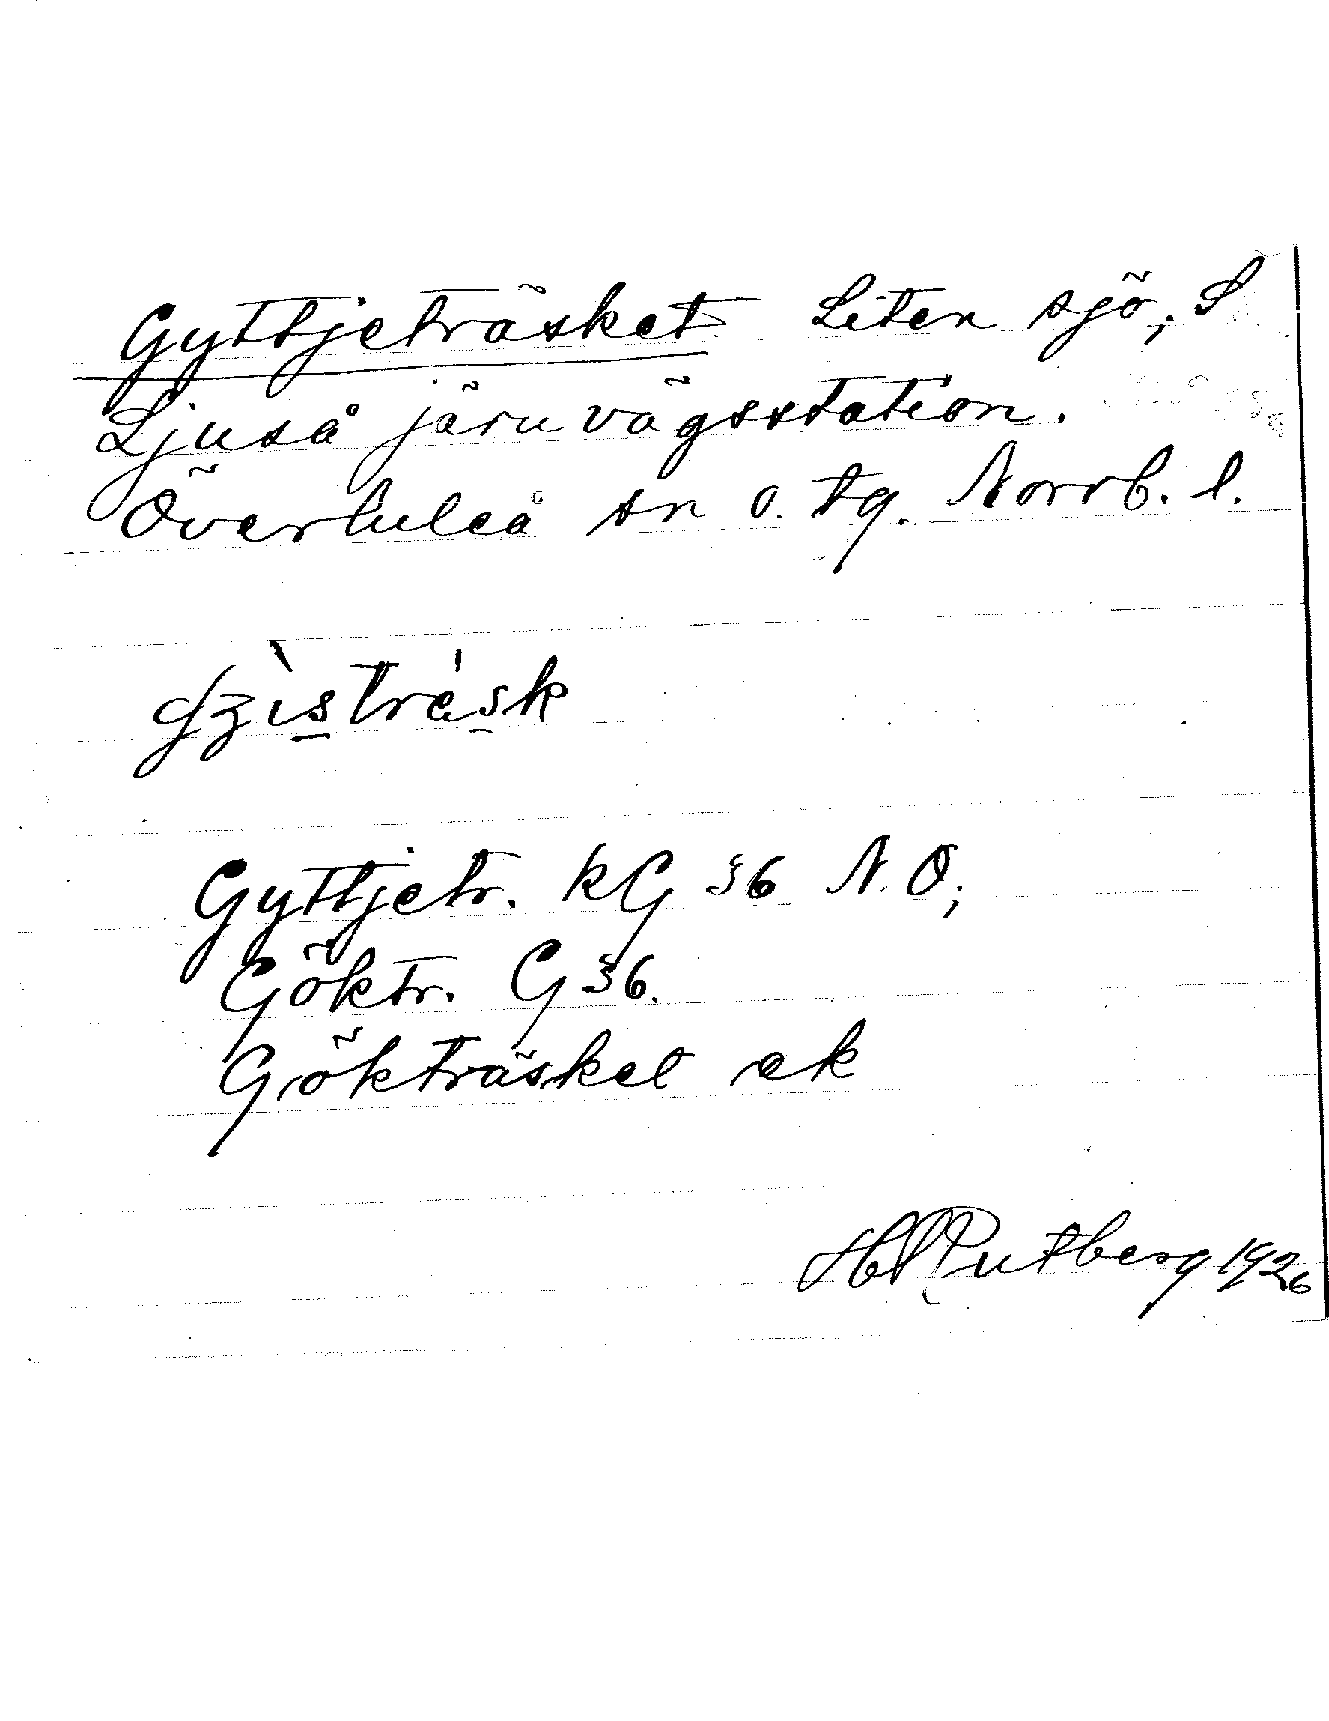 Gyttjeträsket Liten sjö, S
Ljuså järnvägsstation.
Överluleå sn o. tg. Norrb. l.
Gyttjetr. kG 36 N.O;
Göktr. G 36.
Gökträsket ek
H Rutberg 1926